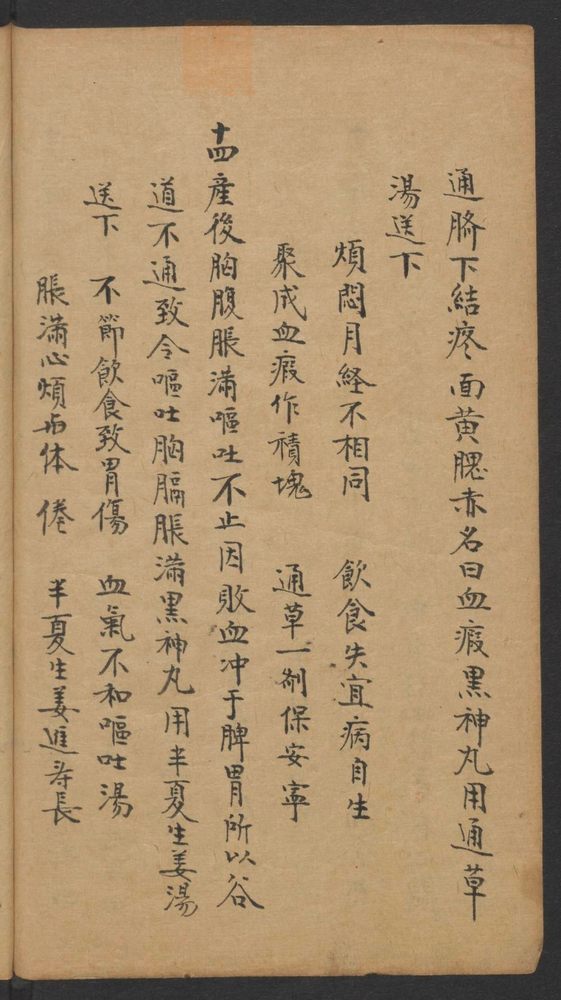 通臍下結疼面黄腮赤名曰血瘕黒神丸用通草
湯送下
煩悶月経不相同　飲食失宜病自生
聚成血瘕作積塊　通草一劑保安寧
十四產後胸腹脹滿嘔吐不止因敗血冲于脾胃所以谷
道不通致令嘔吐胸膈脹滿黒神丸用半夏生姜湯
送下　不節飲食致胃傷　血氣不和嘔吐湯
脹滿心煩而体倦　半夏生姜進寿長